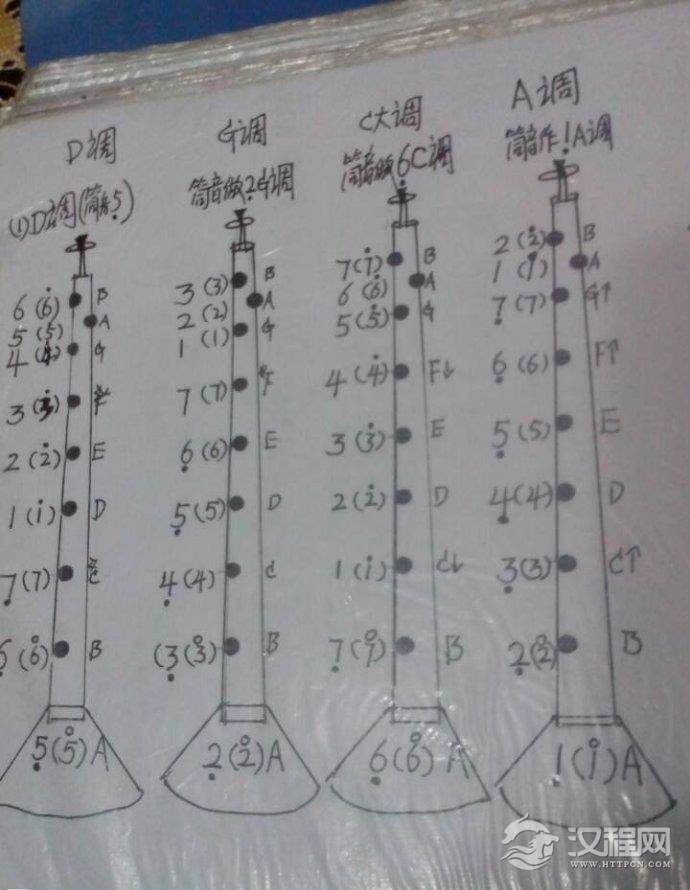 D调
(1)D调(筒音5̣)
6(6̇) B
5(5̇) A
4(4̇) G
3(3̇) #F
2(2̇) E
1(1̇) D
7̣(7) #C
6̣(6̊) B
5̣(5̊)A
G调
筒音做2̣G调
3(3) B
2(2) A
1(1) G
7(7) #F
6̣(6) E
5̣(5) D
4̣(4) C
(3̣(3̊) B
2̣(2̊)A
C大调
筒音做6̣C调
7(7̇) B
6(6̇) A
5(5̇) G
4(4̇) F↓
3(3̇) E
2(2̇) D
1(1̇) C↓
7̣(7̊) B
6̣(6̊)A
A调
筒音作1̣A调
2(2̇) B
1(1̇) A
7̣(7) G↑
6̣(6) F↑
5̣(5) E
4̣(4) D
3̣(3) C↑
2̣(2̊) B
1̣(1̊)A
汉程网
WWW.HTTPCN.COM